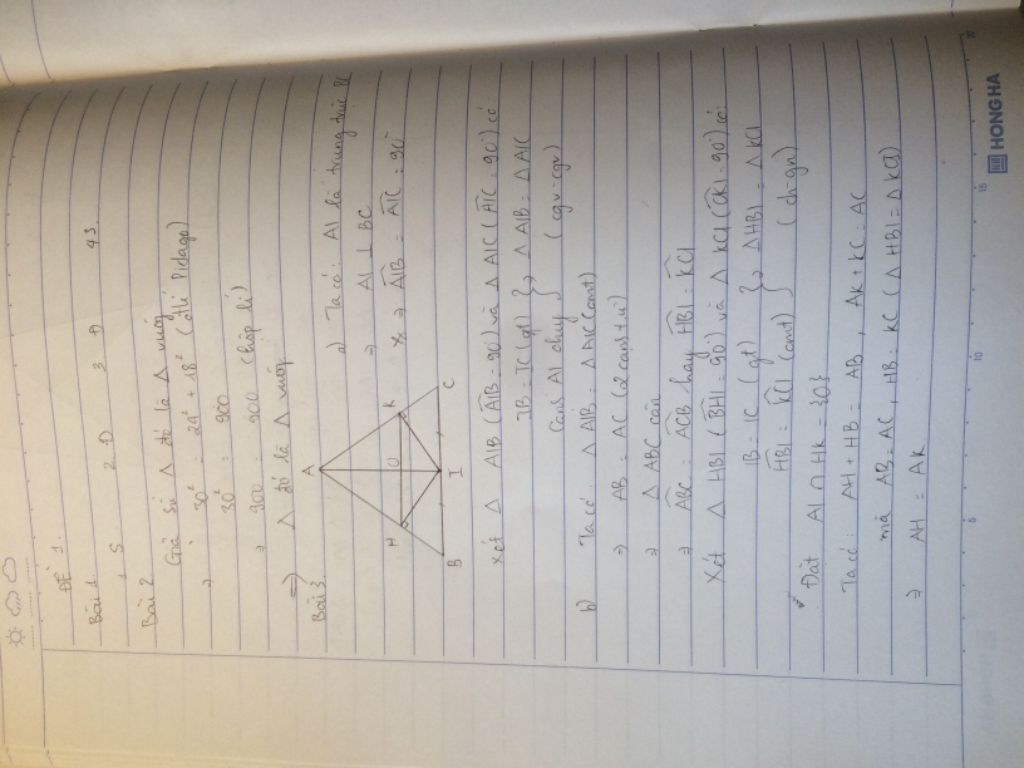 ĐỀ 1.
Bài 1
1 S 2 Đ 3 Đ 4 S
Bài 2
Giả sử Δ đó là Δ vuông
=> 30² = 24² + 18² (đlí Pidago)
30² = 900
=> 900 = 900 (hợp lí)
=> Δ đó là Δ vuông
Bài 3
A
H
K
O
B
I
C
a) Ta có: AI là trung trực
=> AI ⊥ BC
=> AIB = AIC = 90°
Xét Δ AIB (AIB = 90°) và Δ AIC (AIC = 90°) có
IB = IC (gt) } => Δ AIB = Δ AIC
Cạnh AI chung (cgv-cgv)
b) Ta có: Δ AIB = Δ AIC (cmt)
=> AB = AC (2 cạnh t.ứ)
=> Δ ABC cân
=> ABC = ACB hay HBI = KCI
Xét Δ HBI (BHI = 90°) và Δ KCI (CKI = 90°) có:
IB = IC (gt) } => Δ HBI = Δ KCI
HBI = KCI (cmt) (ch-gn)
Đặt AI ∩ HK = {O}
Ta có: AH + HB = AB, AK + KC = AC
mà AB = AC, HB = KC (Δ HBI = Δ KCI)
=> AH = AK
5
10
15
20
HONG HA